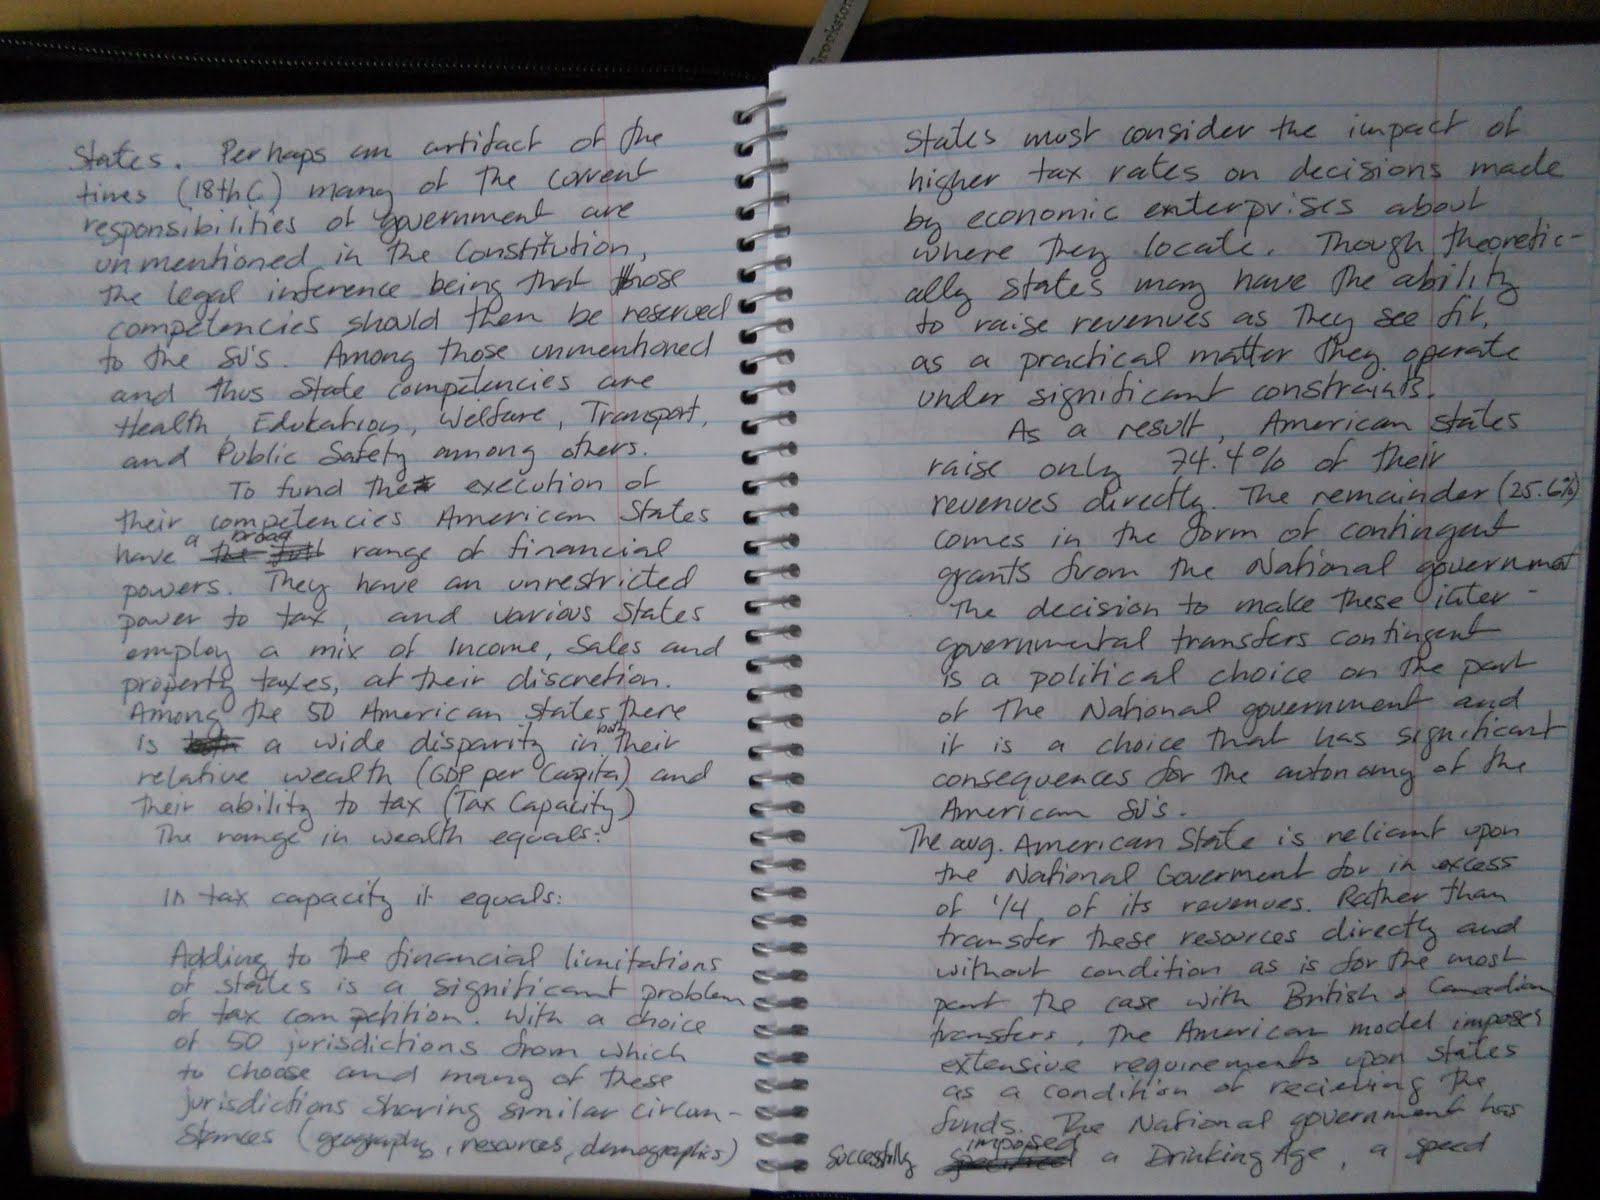 Brookston
States. Perhaps an artifact of the
times (18th C) many of the current
responsibilities of government are
unmentioned in the Constitution,
the legal inference being that those
competencies should then be reserved
to the SU's. Among those unmentioned
and thus State competencies are
Health, Edukation, Welfare, Transport,
and Public Safety among others.
To fund the execution of
their competencies American States
have a broad range of financial
powers. They have an unrestricted
power to tax, and various States
employ a mix of Income, Sales and
property taxes, at their discretion.
Among the 50 American States there
is a wide disparity in both their
relative wealth (GDP per Capita) and
their ability to tax (Tax Capacity)
The range in wealth equals:
In tax capacity it equals:
Adding to the financial limitations
of states is a significant problem
of tax competition. With a choice
of 50 jurisdictions from which
to choose and many of these
jurisdictions sharing similar circum-
stances (geography, resources, demographics)
States must consider the impact of
higher tax rates on decisions made
by economic enterprises about
where they locate. Though theoretic-
ally states may have the ability
to raise revenues as they see fit,
as a practical matter they operate
under significant constraints.
As a result, American states
raise only 74.4% of their
revenues directly. The remainder (25.6%)
comes in the form of contingent
grants from the National government
The decision to make these inter-
governmental transfers contingent
is a political choice on the part
of the National government and
it is a choice that has significant
consequences for the autonomy of the
American SU's.
The avg. American State is reliant upon
the National Goverment for in excess
of 1/4 of its revenues. Rather than
transfer these resources directly and
without condition as is for the most
part the case with British & Canadian
transfers, the American model imposes
extensive requirements upon states
as a condition of recieving the
funds. The National government has
successfully imposed a Drinking Age, a speed